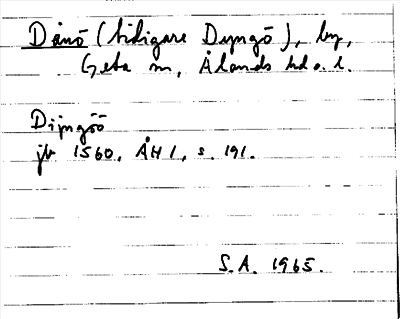 Dånö (tidigare Dyngö), by,
Geta sn, Ålands hd o. l.
Dijngöö
jb 1560. ÅH 1, s. 191.
S.A. 1965.